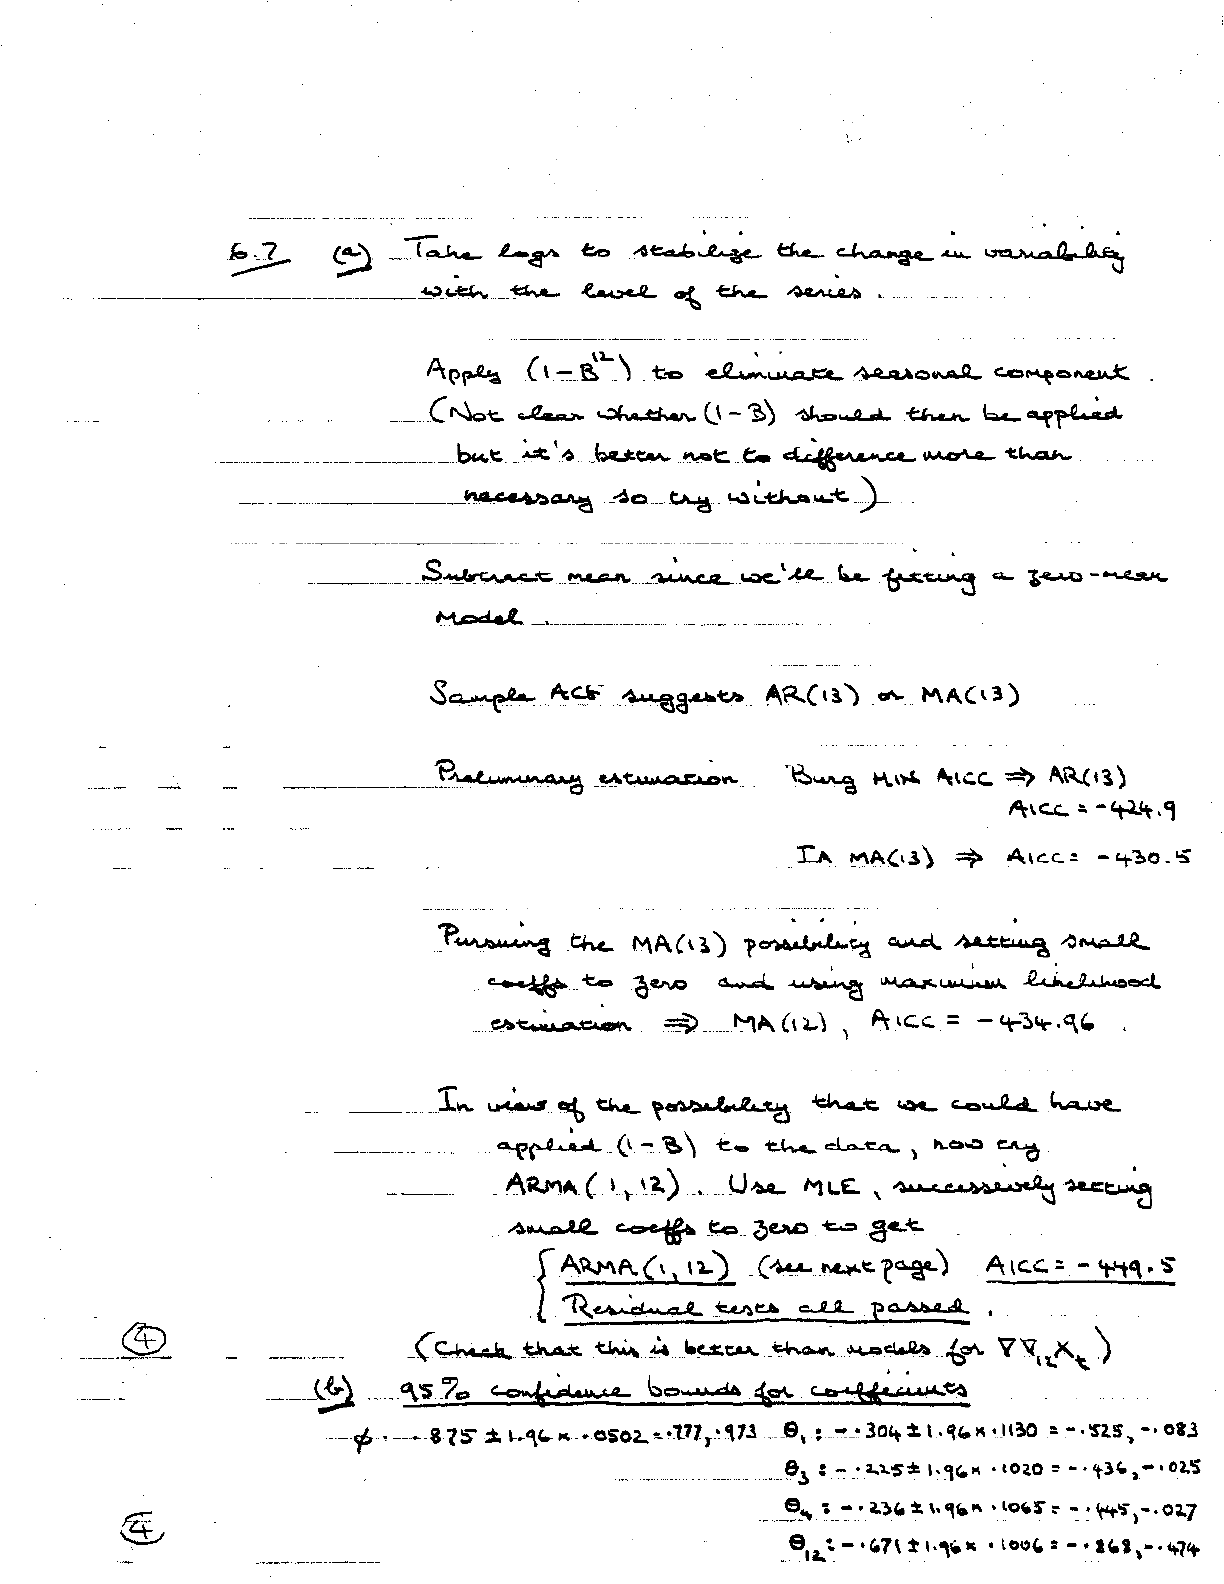 6.7 (a) Take logs to stabilize the change in variability
with the level of the series.
Apply (1-B¹²) to eliminate seasonal component.
(Not clear whether (1-B) should then be applied
but it's better not to difference more than
necessary so try without)
Subtract mean since we'll be fitting a zero-mean
model.
Sample ACF suggests AR(13) or MA(13)
Preliminary estimation Burg MIN AICC ⇒ AR(13)
AICC = -424.9
IA MA(13) ⇒ AICC = -430.5
Pursuing the MA(13) possibility and setting small
coeffs to zero and using maximum likelihood
estimation ⇒ MA(12), AICC = -434.96.
In view of the possibility that we could have
applied (1-B) to the data, now try
ARMA(1,12). Use MLE, successively setting
small coeffs to zero to get
{ ARMA(1,12) (see next page) AICC = -449.5
Residual tests all passed.
④ (Check that this is better than models for ∇∇₁₂Xₜ)
(b) 95% confidence bounds for coefficients
φ: .875 ± 1.96 × .0502 = .777, .973 θ₁: -.304 ± 1.96 × .1130 = -.525, -.083
θ₃: -.225 ± 1.96 × .1020 = -.436, -.025
θ₄: -.236 ± 1.96 × .1065 = -.445, -.027
④ θ₁₂: -.671 ± 1.96 × .1006 = -.868, -.474